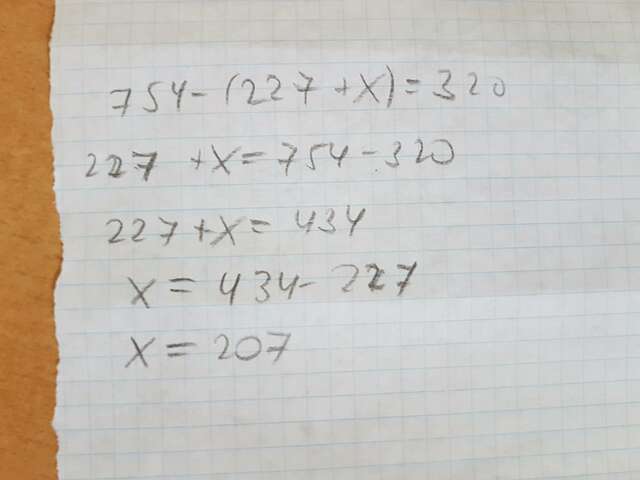 754-(227+x)=320
227+x=754-320
227+x=434
x=434-227
x=207